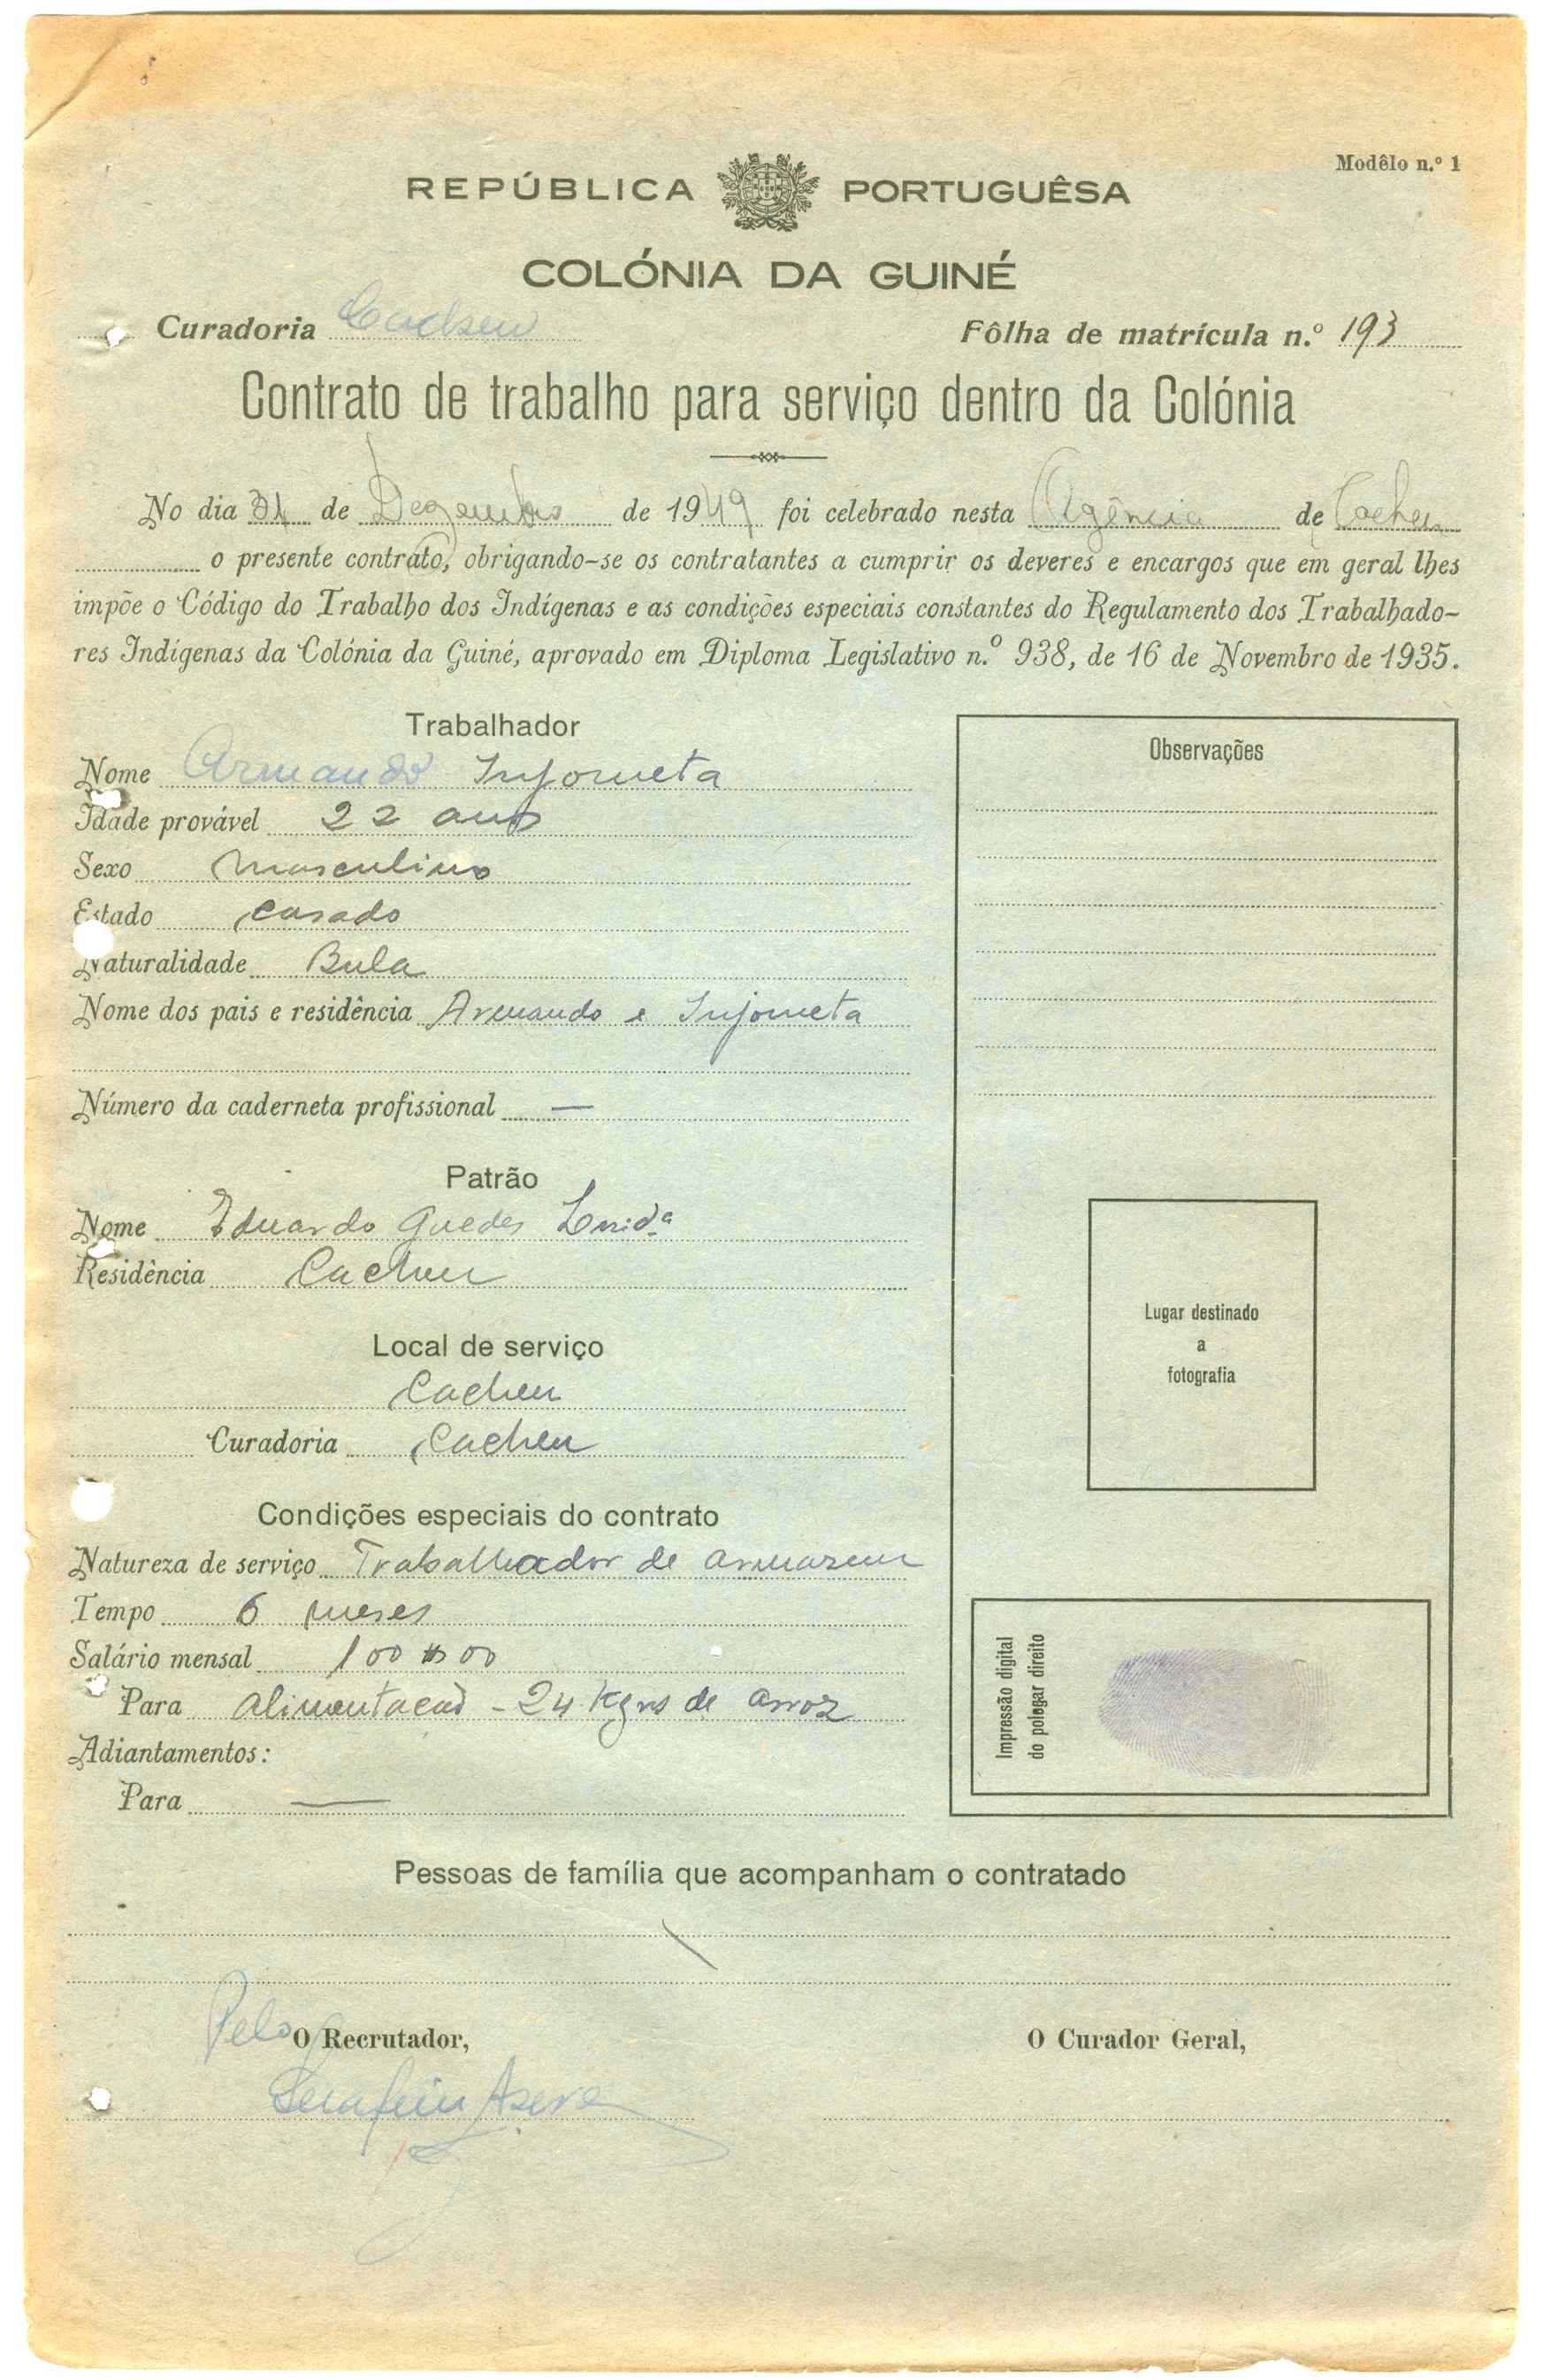 Modêlo n.º 1
REPÚBLICA PORTUGUÊSA
COLÓNIA DA GUINÉ
Curadoria Cacheu Fôlha de matrícula n.º 193
Contrato de trabalho para serviço dentro da Colónia
No dia 31 de Dezembro de 1949 foi celebrado nesta Agência de Cacheu
o presente contrato, obrigando-se os contratantes a cumprir os deveres e encargos que em geral lhes
impõe o Código do Trabalho dos Indígenas e as condições especiais constantes do Regulamento dos Trabalhado-
res Indígenas da Colónia da Guiné, aprovado em Diploma Legislativo n.º 938, de 16 de Novembro de 1935.
Trabalhador
Nome Armando Injometa
Idade provável 22 anos
Sexo Masculino
Estado casado
Naturalidade Bula
Nome dos pais e residência Armando e Injometa
Número da caderneta profissional —
Patrão
Nome Eduardo Guedes
Residência Cacheu
Local de serviço
Cacheu
Curadoria Cacheu
Condições especiais do contrato
Natureza de serviço Trabalhador de armazem
Tempo 6 meses
Salário mensal 100$00
Para alimentação - 24 Kgrs de arroz
Adiantamentos:
Para —
Observações
Lugar destinado
a
fotografia
Impressão digital
do polegar direito
Pessoas de família que acompanham o contratado
Pelo O Recrutador,
Serafim
O Curador Geral,